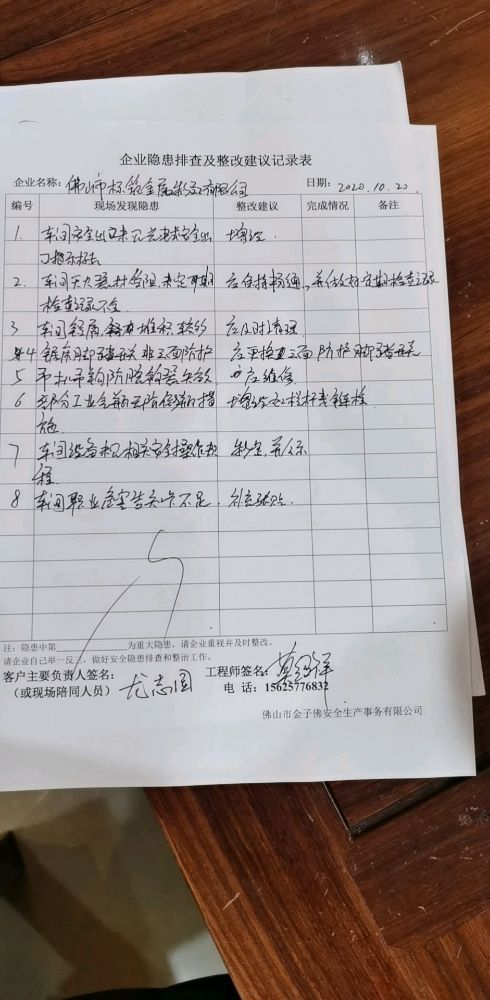 企业隐患排查及整改建议记录表
企业名称: 佛山市标筑金属制品有限公司 日期: 2020.10.20.
编号 现场发现隐患 整改建议 完成情况 备注
1. 车间安全出口未见光电安全出 增设.
口指示标志
2. 车间灭火器材受阻 未定期 应保持畅通, 并做好定期检查记录
检查记录不全.
3 车间铝屑 堆积较多 应及时清理
4 锯床脚踏开关非三面防护 应更换为三面防护脚踏开关
5 吊机吊钩防脱钩器失效 应维修
6 部分工业气瓶无防倒措 增设 栏杆或链栓
施.
7 车间设备未见相关安全操作规 制定, 并公示
程.
8 车间职业危害告知卡不足. 补充张贴.
注: 隐患中第____________为重大隐患, 请企业重视并及时整改。
请企业自己举一反三, 做好安全隐患排查和整治工作。
客户主要负责人签名: 工程师签名:
(或现场陪同人员) 尤志国 电 话: 15625776832
佛山市金子佛安全生产事务有限公司